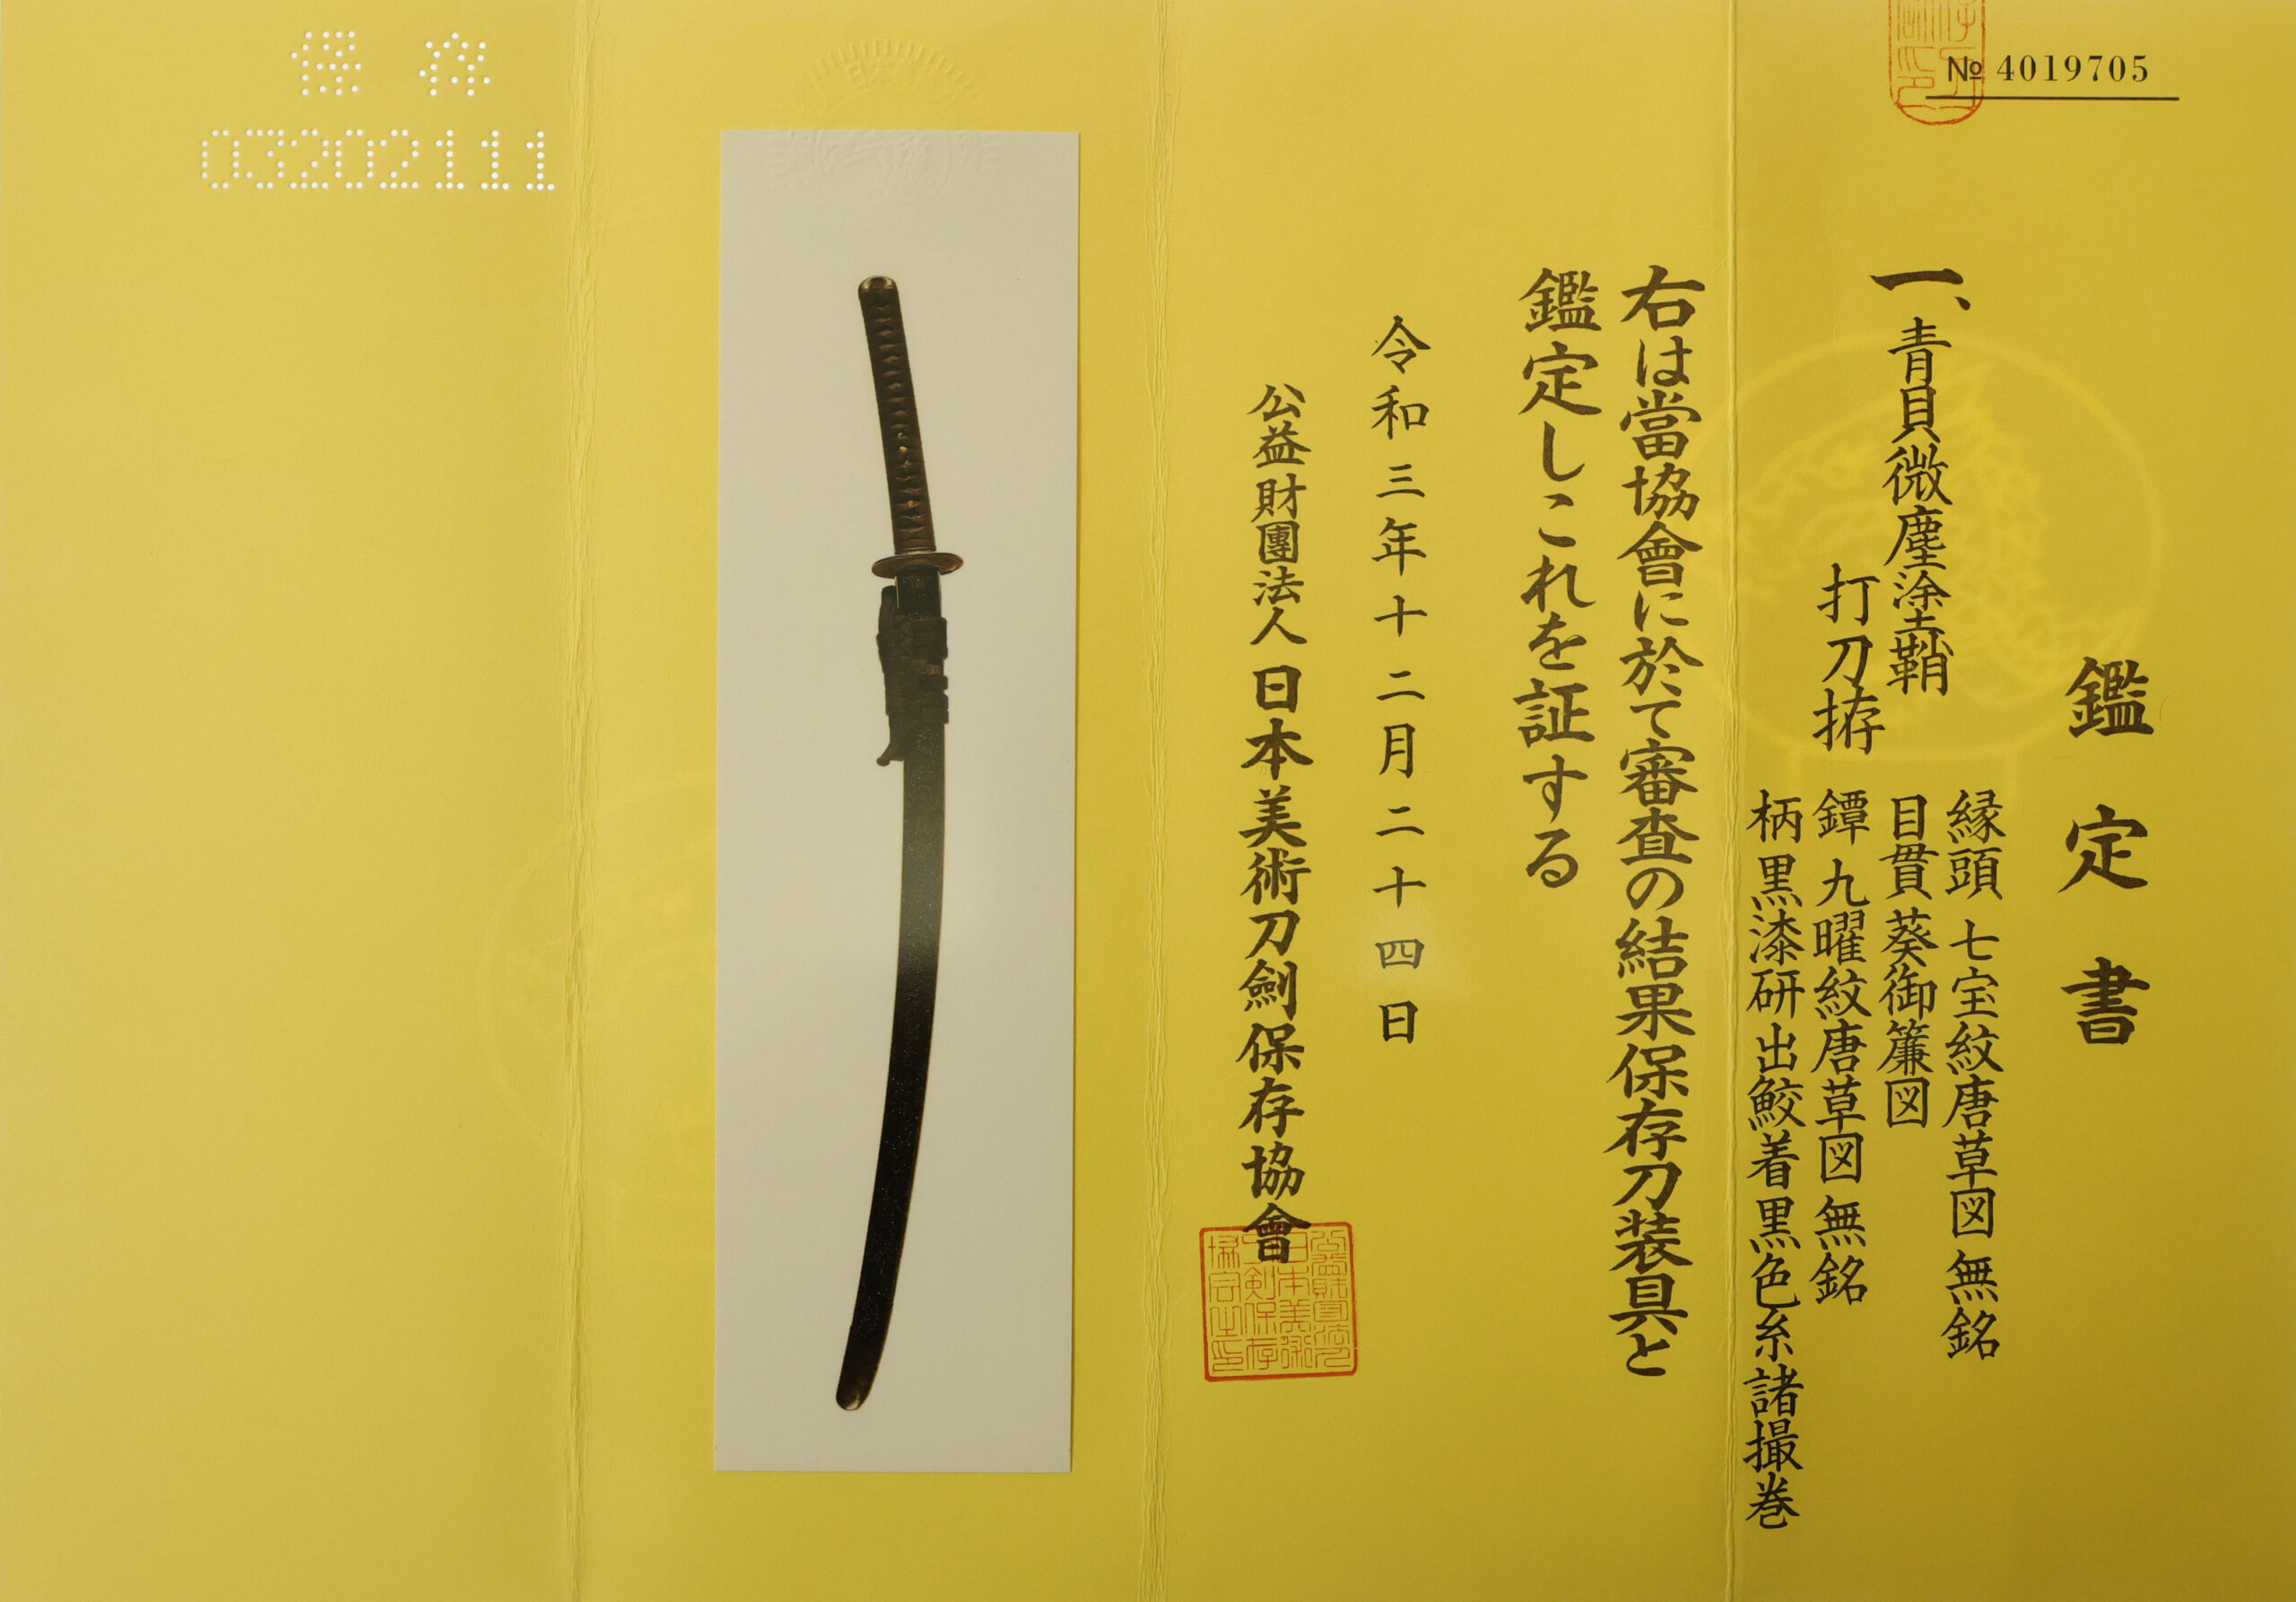 № 4019705
鑑定書
一、青貝微塵塗鞘
打刀拵
縁頭 七宝紋唐草図 無銘
目貫 葵御簾図
鐔 九曜紋唐草図 無銘
柄 黒漆研出鮫着黒色糸諸撮巻
右は當協會に於て審査の結果保存刀装具と
鑑定しこれを証する
令和三年十二月二十四日
公益財團法人 日本美術刀劍保存協會
保存
03202111